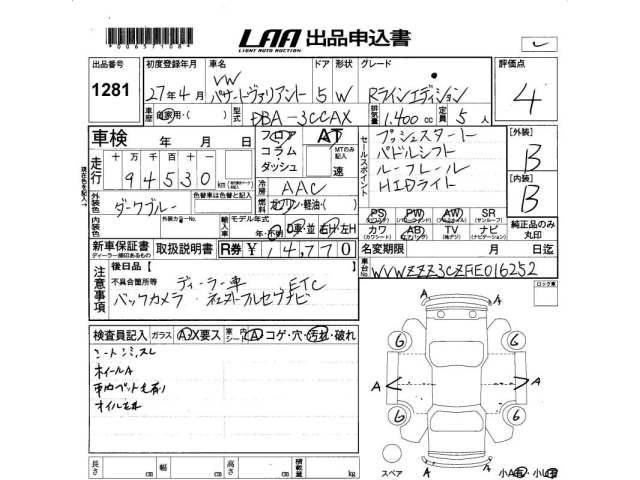 *00657108*
LAA 出品申込書
LIGHT AUTO AUCTION
出品番号 初度登録年月 車名 ドア 形状 グレード 評価点
1281 27年4月 VW パサートヴァリアント 5 W Rラインエディション 4
車歴 自家用・( ) 型式 DBA-3CCAX 排気量 1,400cc 定員 5人
車検 年 月 日 フロア コラム・ダッシュ AT MTのみ記入 速
セールスポイント プッシュスタート
パドルシフト
ルーフレール
HIDライト
[外装] B
[内装] B
走行 十万千百十 94530 km
冷房 AAC
燃料 ガソリン・軽油・( )
外装色 ダークブルー 色替車は色替と記入
内装色 外装カラーNo. 輸入車 モデル年式 年・不明 D車・並 右H・左H
PS PW AW SR (サンルーフ)
カワ (カワシート) AB (エアバック) TV (地デジ) ナビ (ナビゲーション)
純正品のみ丸印
新車保証書 取扱説明書 R券 ¥14,770 名変期限 月 日迄
ディーラー捺印あるもの
車台No. WVWZZZ3CZFE016252
注意事項 後日品【
不具合箇所等 ディーラー車 ETC
バックカメラ
ロック車
検査員記入 ガラス A・X要ス 室内シート A・コゲ・穴・汚れ・破れ
ホイールA
6 6
A A
6 6
A
スペア 小A有・小U有
長さ cm 幅 cm 高さ cm 積載量 kg